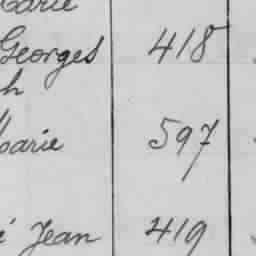 Marie
Georges 418
h
Marie 597
é Jean 419